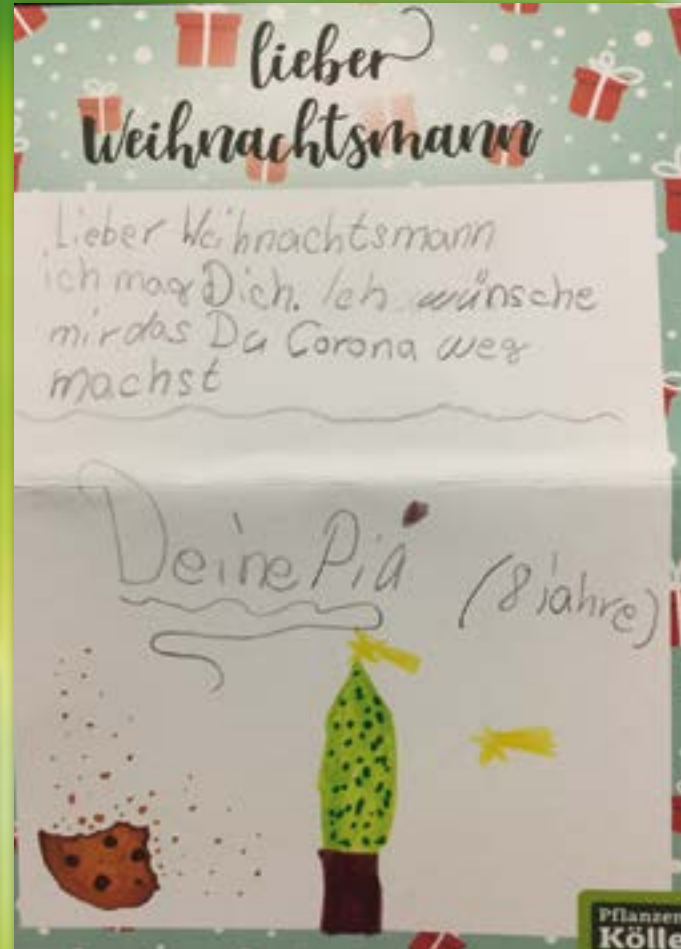 lieber
Weihnachtsmann
Lieber Weihnachtsmann
ich mag Dich. Ich wünsche
mir das Du Corona weg
machst
Deine Pia (8 jahre)
Pflanzen
Kölle